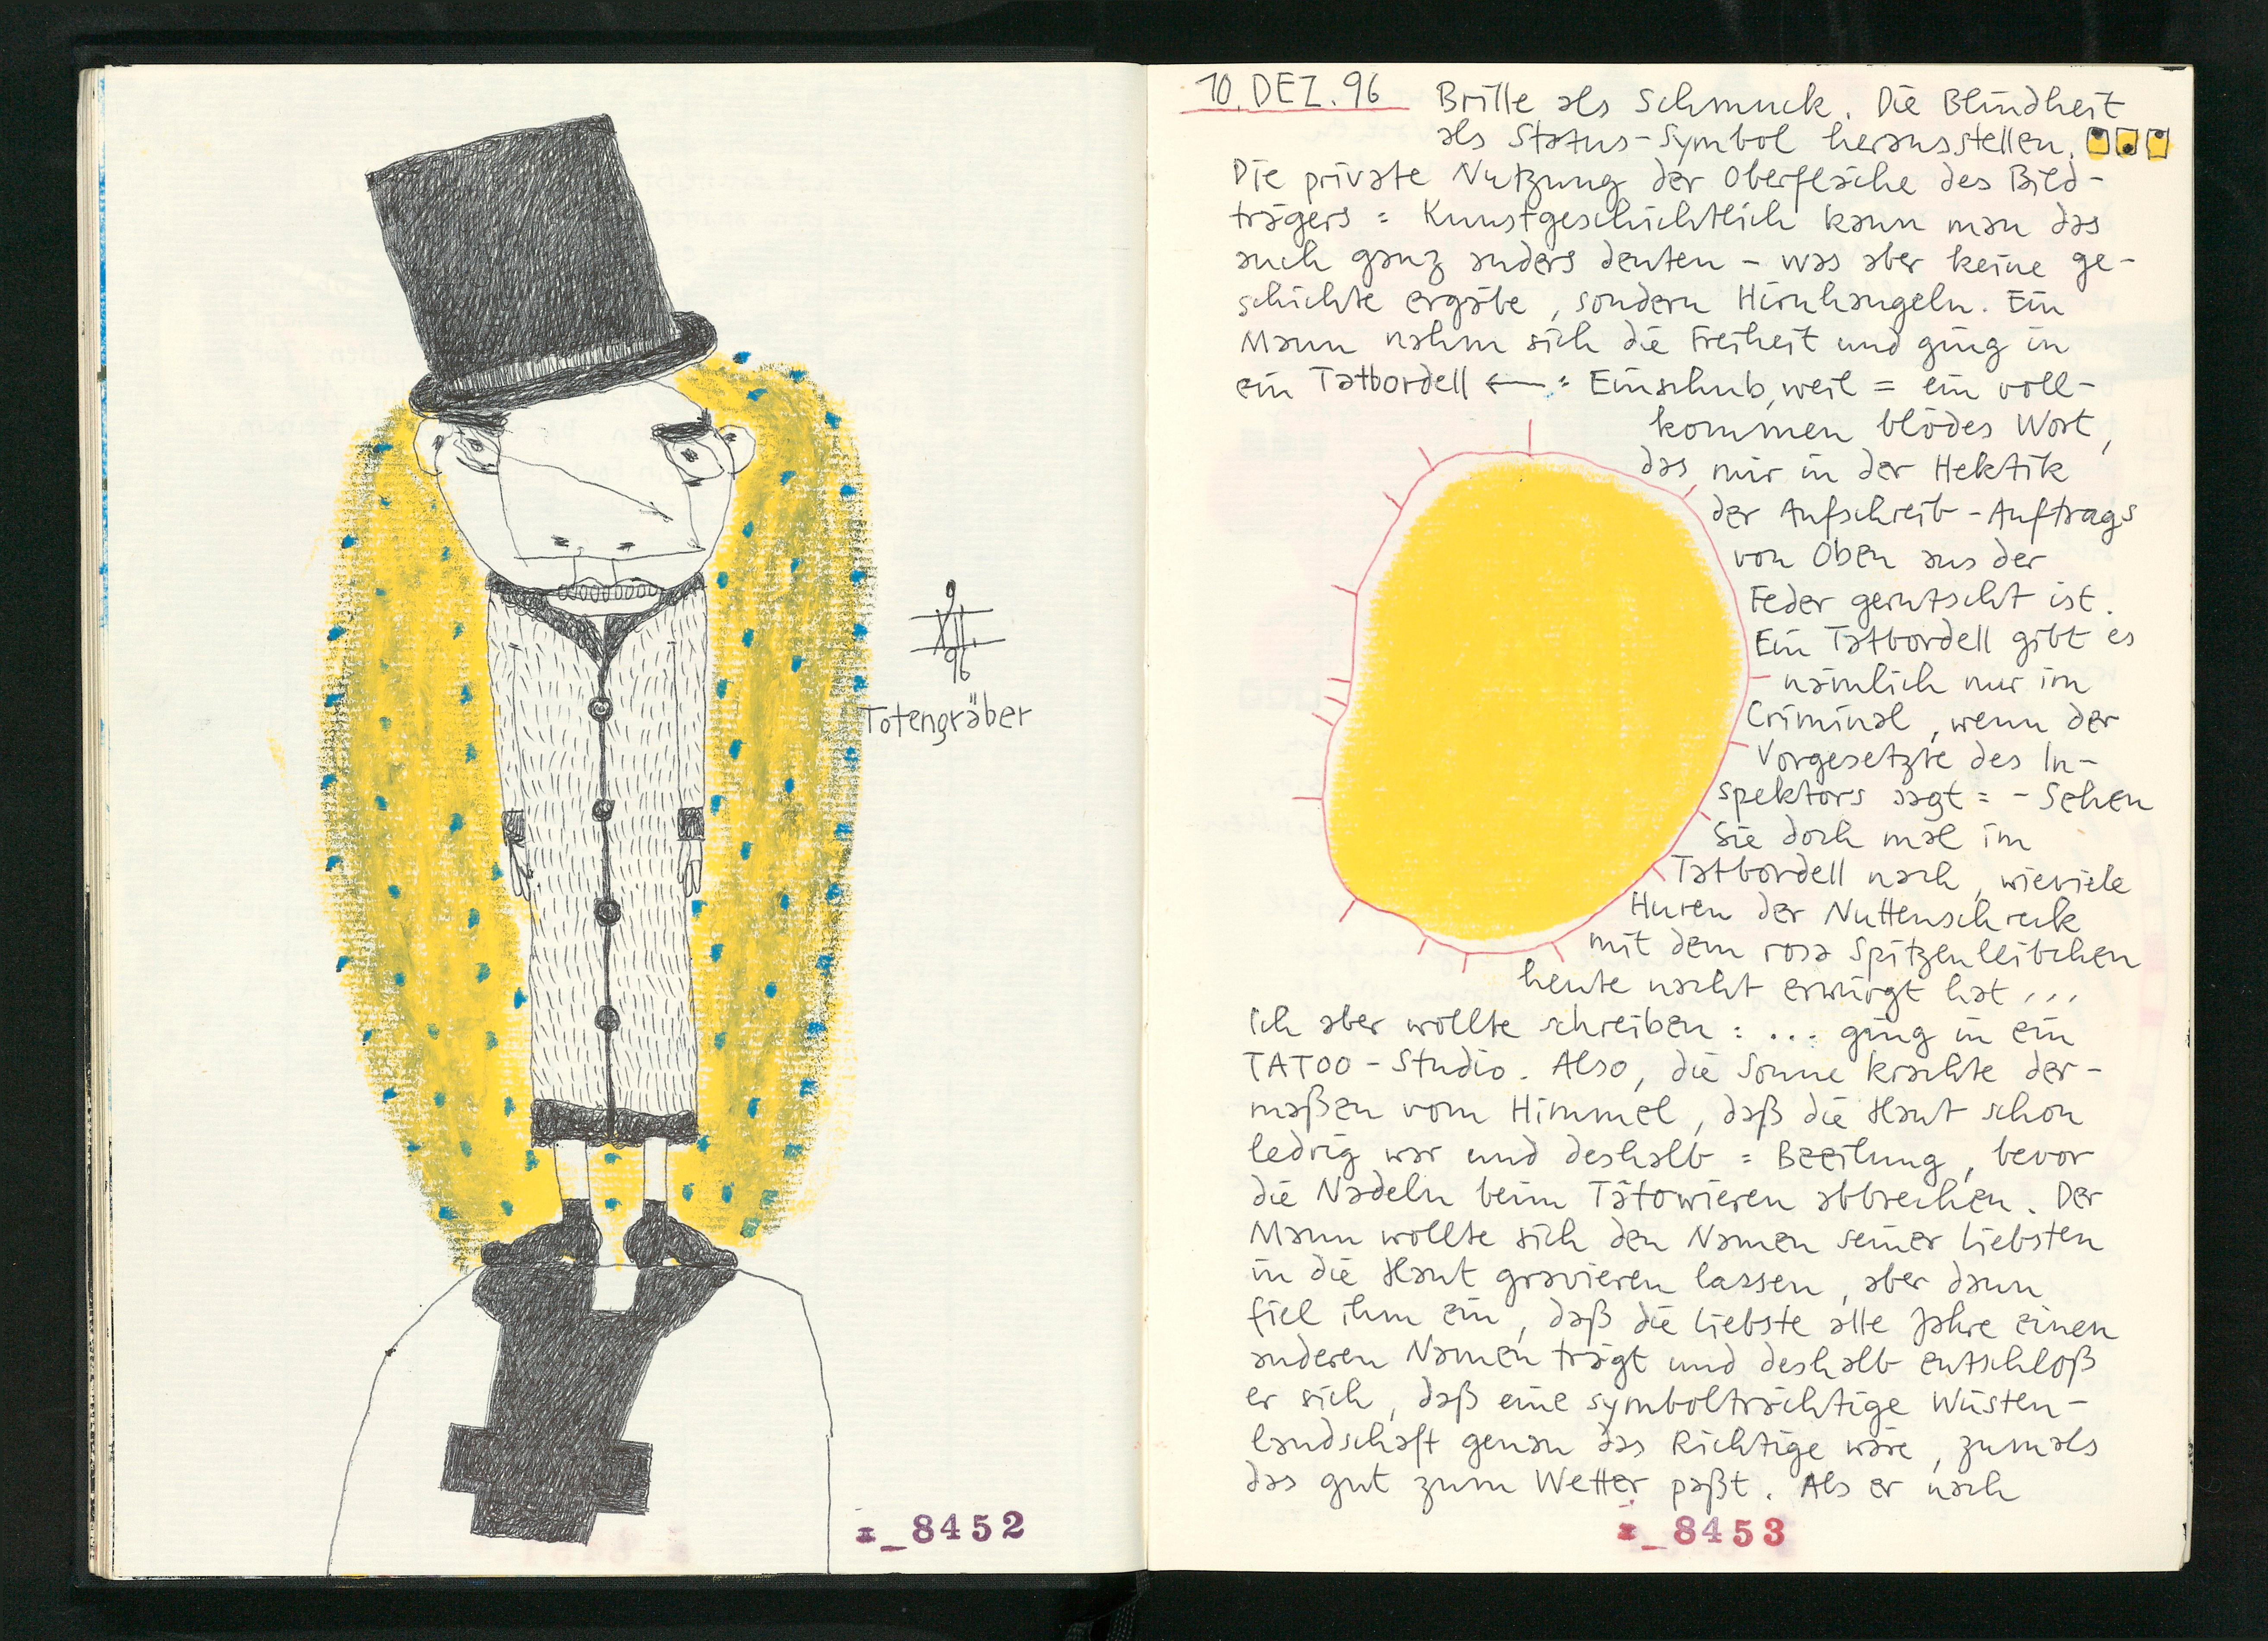 9
96
Totengräber
I_8452
10. DEZ. 96 Brille als Schmuck. Die Blindheit
als Status-Symbol herausstellen.
Die private Nutzung der Oberfläche des Bild-
trägers = Kunstgeschichtlich kann man das
auch ganz anders deuten - was aber keine ge-
schichte ergäbe, sondern Hirnhangeln. Ein
Mann nahm sich die Freiheit und ging in
ein Tatbordell ← : Einschub, weil = ein voll-
kommen blödes Wort,
das mir in der Hektik
der Aufschreib-Auftrags
von Oben aus der
Feder gerutscht ist.
Ein Tatbordell gibt es
nämlich nur im
Criminal, wenn der
Vorgesetzte des In-
spektors sagt = - Sehen
Sie doch mal im
Tatbordell nach, wieviele
Huren der Nuttenschreck
mit dem rosa Spitzenleibchen
heute nacht erwürgt hat ...
Ich aber wollte schreiben : ... ging in ein
TATOO-Studio. Also, die Sonne krachte der-
maßen vom Himmel, daß die Haut schon
ledrig war und deshalb = Beeilung, bevor
die Nadeln beim Tätowieren abbrechen. Der
Mann wollte sich den Namen seiner Liebsten
in die Haut gravieren lassen, aber dann
fiel ihm ein, daß die Liebste alle Jahre einen
anderen Namen trägt und deshalb entschloß
er sich, daß eine symbolträchtige Wüsten-
landschaft genau das Richtige wäre, zumals
das gut zum Wetter paßt. Als er nach
I_8453